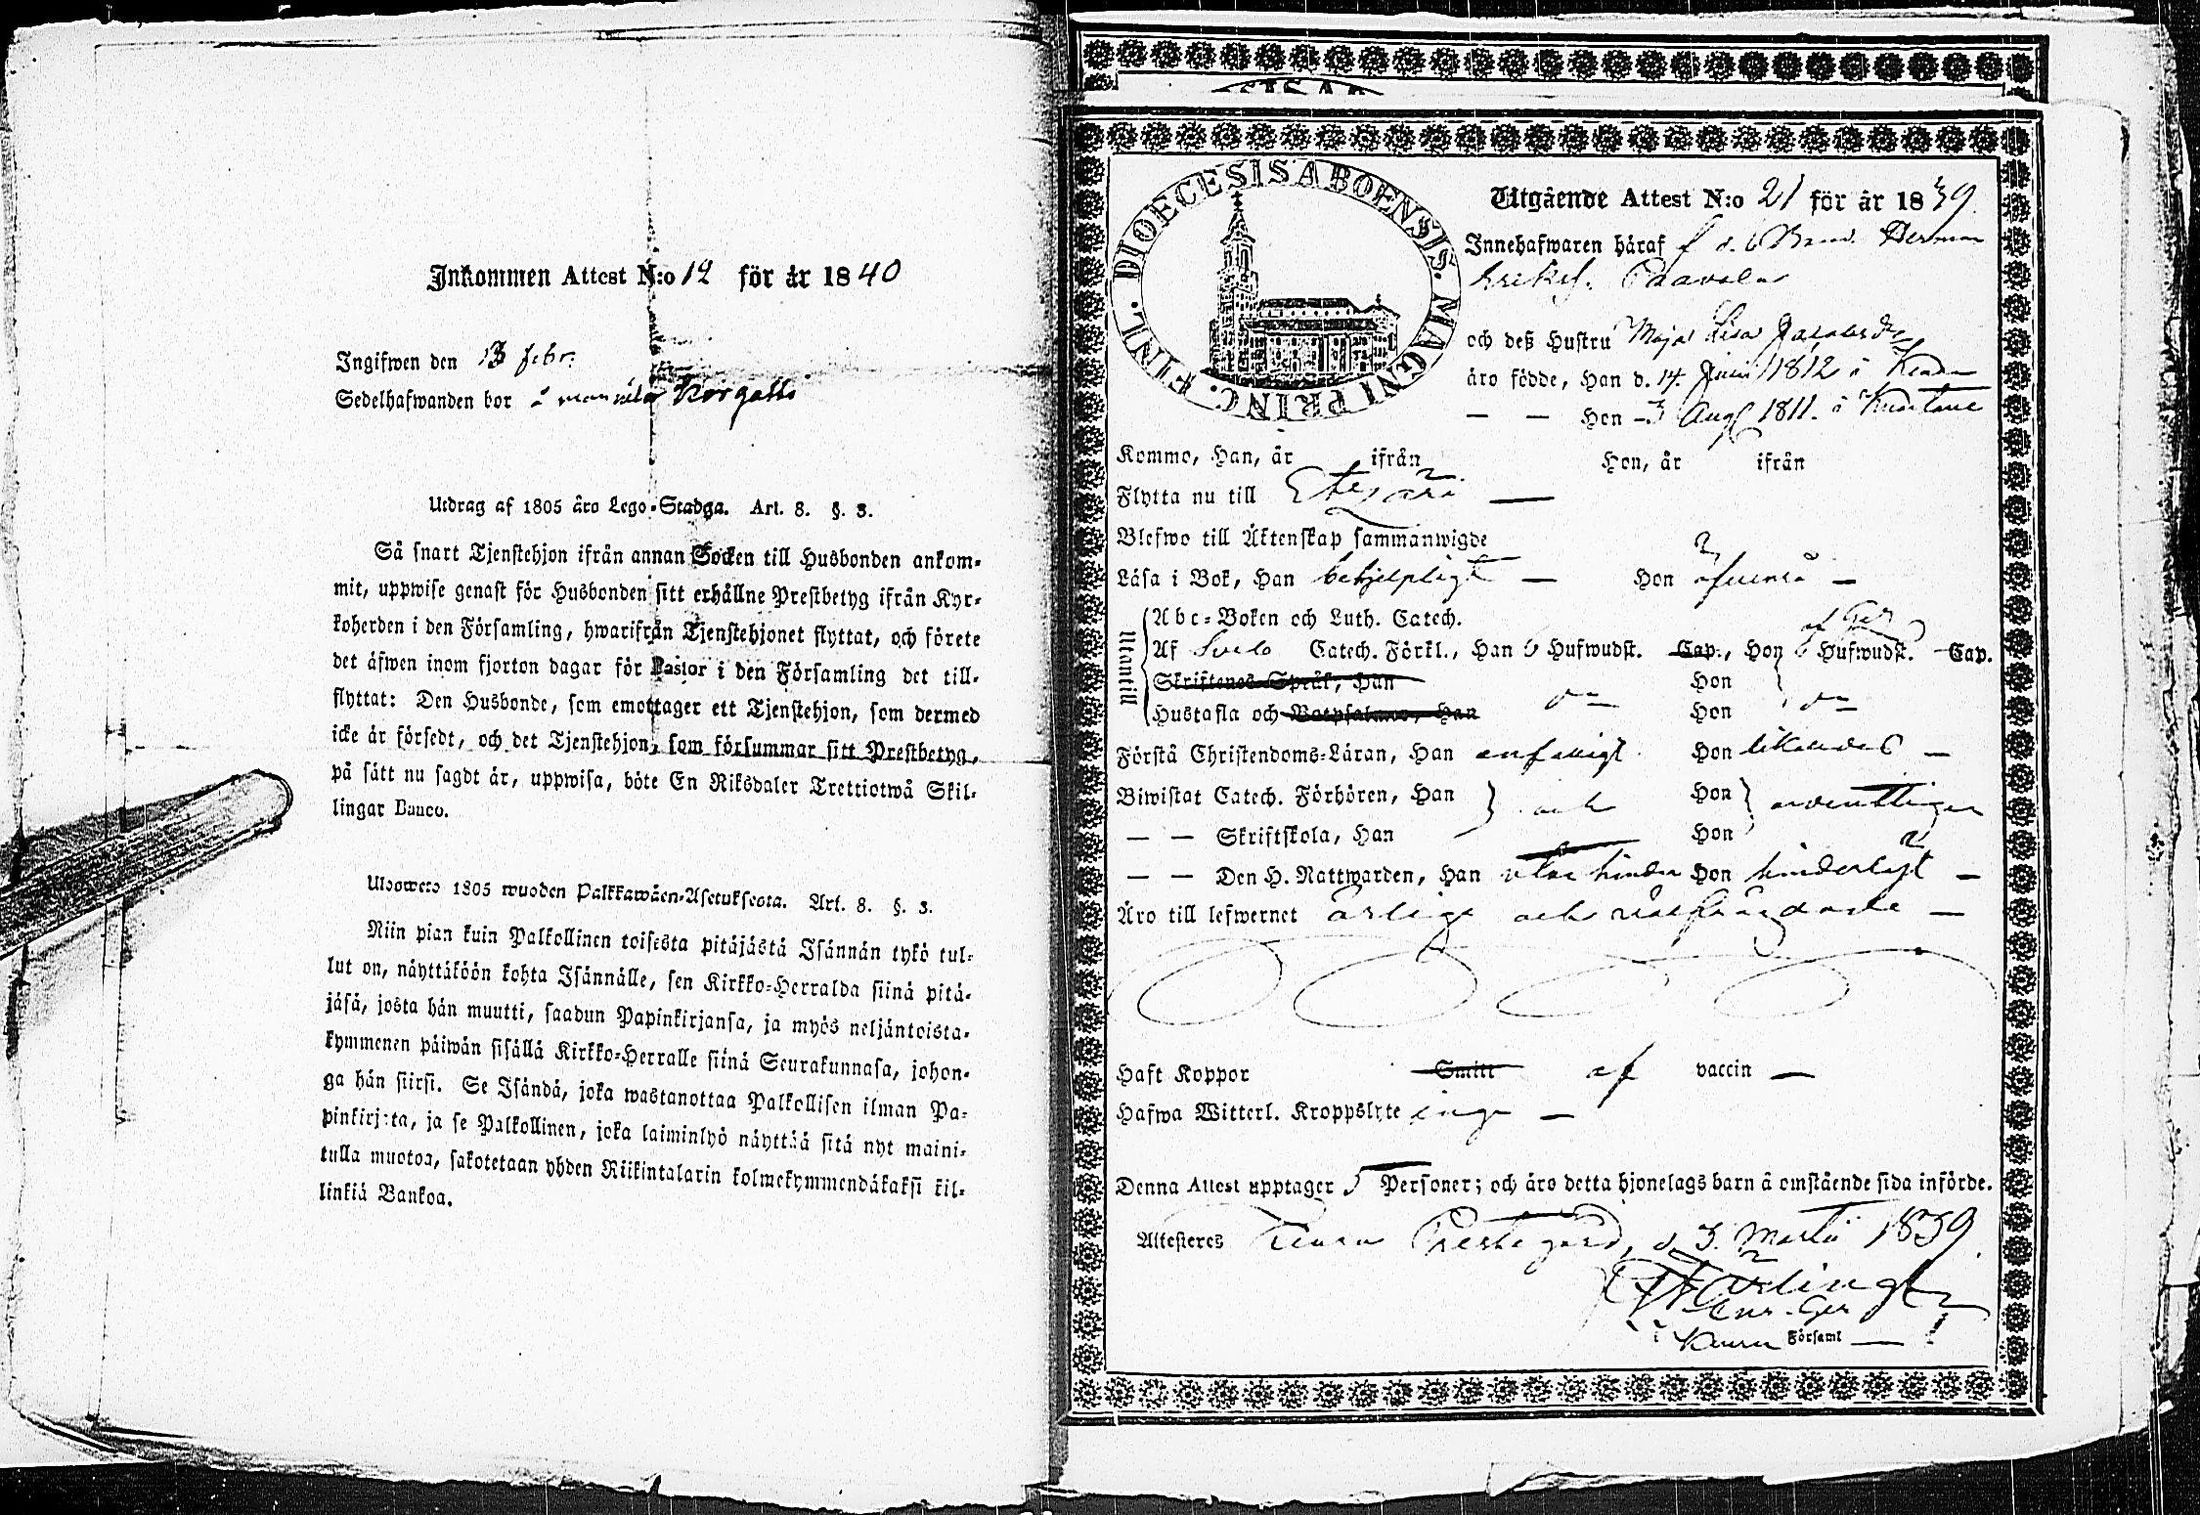 Inkommen Attest N:o 12 för år 1840
Ingifwen den 13 febr.
Sedelhafwanden bor å
Utdrag af 1805 års Lego-Stadga. Art. 8. §. 3.
Så snart Tjenstehjon ifrån annan Socken till Husbonden ankom-
mit, uppwise genast för Husbonden sitt erhållne Prestbetyg ifrån Kyr-
koherden i den Församling, hwarifrån Tjenstehjonet flyttat, och förete
det äfwen inom fjorton dagar för Pastor i den Församling det till-
flyttat: Den Husbonde, som emottager ett Tjenstehjon, som dermed
icke är försedt, och det Tjenstehjon, som försummar sitt Prestbetyg,
på sätt nu sagdt är, uppwisa, böte En Riksdaler Trettiotwå Skil-
lingar Banco.
Ulosweto 1805 wuoden Palkkawäen-Asetuksesta. Art. 8. §. 3.
Niin pian kuin Palkollinen toisesta pitäjästä Isännän tykö tul-
lut on, näyttäköön kohta Isännälle, sen Kirkko-Herralda siinä pitä-
jäsä, josta hän muutti, saadun Papinkirjansa, ja myös neljäntoista-
kymmenen päiwän sisällä Kirkko-Herralle siinä Seurakunnasa, johon-
ga hän siirsi. Se Isändä, joka wastanottaa Palkollisen ilman Pa-
pinkirjata, ja se Palkollinen, joka laiminlyö näyttää sitä nyt maini-
tulla muotoa, sakotetaan yhden Riikintalarin kolmekymmendäkaksi kil-
linkiä Bankoa.
DIOECESIS ABOENSIS. MAGNI PRINC. FINL.
Utgående Attest N:o 21 för år 1839.
Innehafwaren häraf f. d. Herman
Eriks. Paavola
och deß Hustru Maja Lisa
äro födde, Han d. 14. Junii 1812 i
— — Hon - 3 Aug 1811. i Kuortane
Kommo, Han, år ifrån Hon, år ifrån
Flytta nu till Etseri —
Blefwo till Äktenskap sammanwigde
Läsa i Bok, Han behjelpligt — Hon äfwenså —
Utantill
Abc-Boken och Luth. Catech.
Af Sveb Catech. Förkl., Han 6 Hufwudst. Cap., Hon 6 Hufwudst. Cap.
Skriftenes Språk, Han Hon
Hustafla och Botpsalmer, Han Hon
Förstå Christendoms-Läran, Han enfalligt Hon likaledes —
Biwistat Catech. Förhören, Han och Hon ordentligen
— — Skriftskola, Han Hon
— — Den H. Nattwarden, Han utan hinder Hon hinderlöst —
Äro till lefwernet ärlige och —
Haft Koppor Smitt af vaccin —
Hafwa Witterl. Kroppslyte inga —
Denna Attest upptager 5 Personer; och äro detta hjonelags barn å omstående sida införde.
Attesteres Keuru Prestegård, d. 3. Martii 1839.
i Keuru Församl —